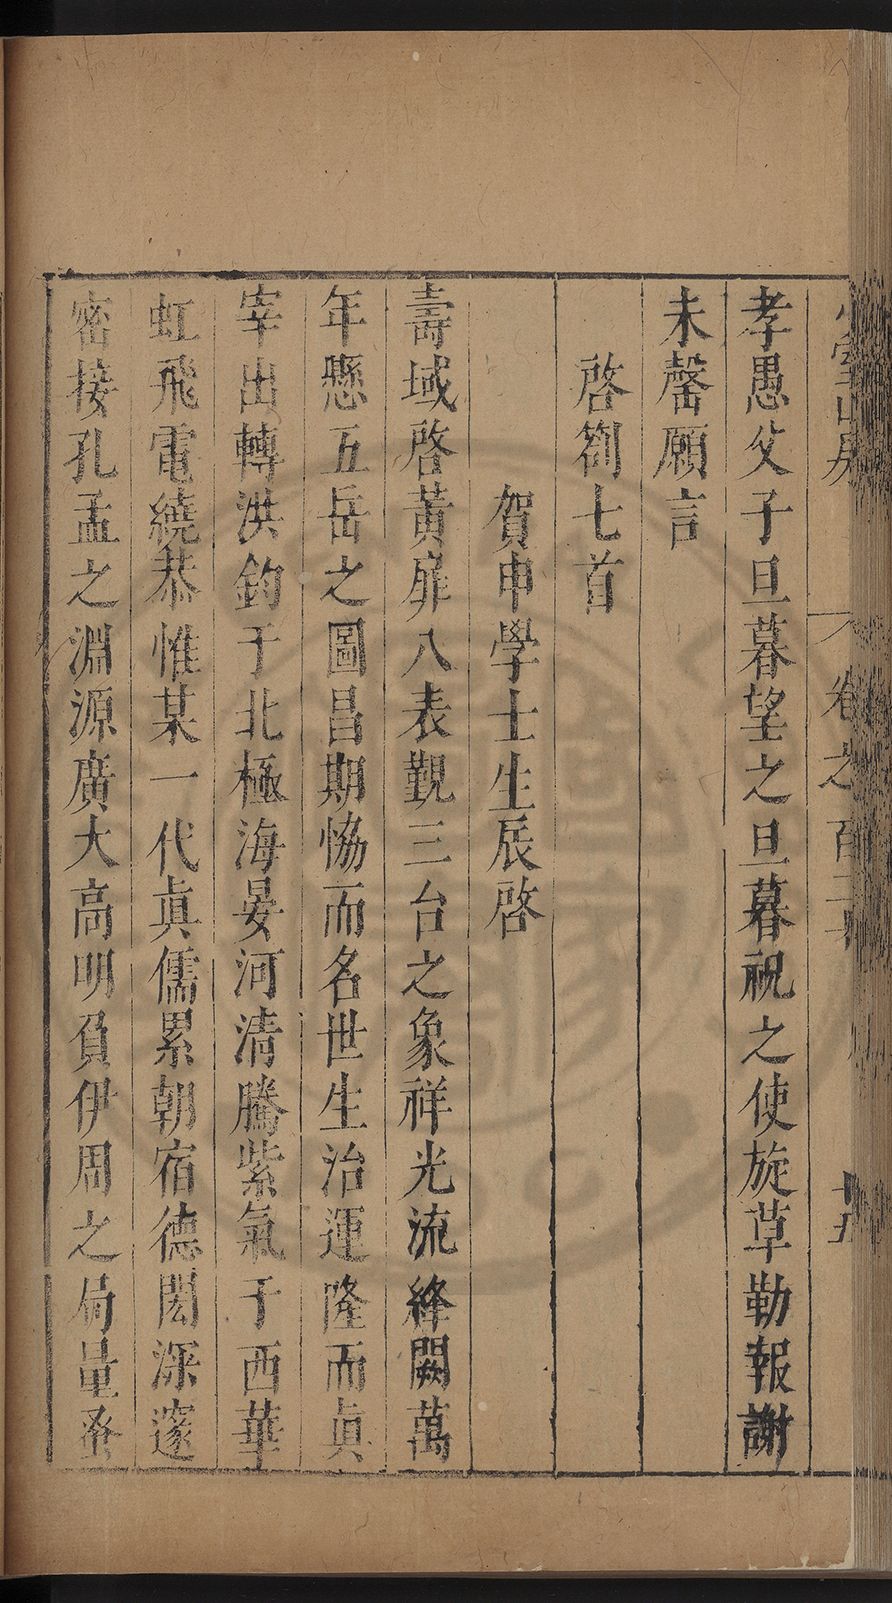 孝愚父子旦暮望之旦暮祝之使旋草勒報謝
未罄願言
啓劄七首
賀申學士生辰啓
壽域啓黃扉八表覲三台之象祥光流絳闕萬
年懸五岳之圖昌期恊而名世生治運隆而真
宰出轉洪鈞于北極海晏河清騰紫氣于西華
虹飛電繞恭惟某一代真儒累朝宿德閎深邃
密接孔孟之淵源廣大高明負伊周之局量蚤